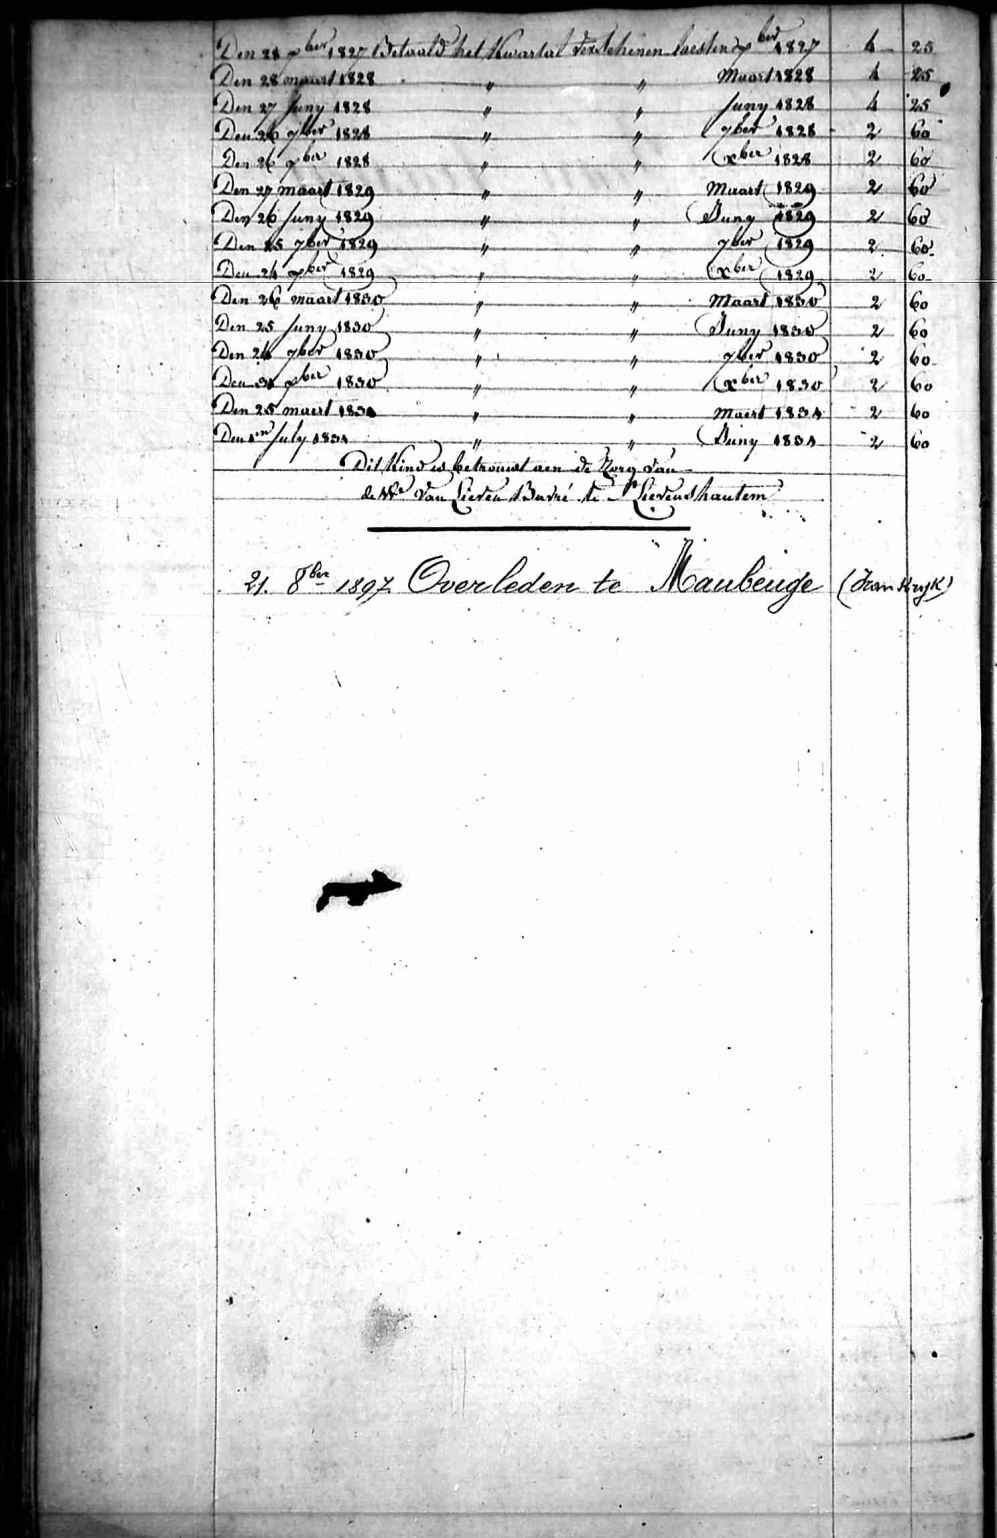 Den 28 xber 1827 Betaald het Kwartal verschenen laesten xber 1827 4 25
Den 28 maart 1828 " " Maart 1828 4 25
Den 27 Juny 1828 " " Juny 1828 4 25
Den 26 7ber 1828 " " 7ber 1828 2 60
Den 26 xber 1828 " " xber 1828 2 60
Den 27 maart 1829 " " Maart 1829 2 60
Den 26 Juny 1829 " " Juny 1829 2 60
Den 25 7ber 1829 " " 7ber 1829 2 60
Den 24 xber 1829 " " xber 1829 2 60
Den 26 maart 1830 " " Maart 1830 2 60
Den 25 Juny 1830 " " Juny 1830 2 60
Den 24 7ber 1830 " " 7ber 1830 2 60
Den xber 1830 " " xber 1830 2 60
Den 25 maert 1831 " " Maert 1831 2 60
Den 1en July 1831 " " Juny 1831 2 60
Dit Kind is betrouwt aen de Zorg van
de We Van Lieven te St Lievens hautem
21. 8ber 1897 Overleden te Maubeuge (Frankryk)